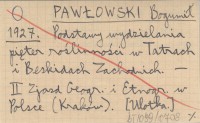 PAWŁOWSKI Bogumił
1927. Podstawy wydzielania
pięter roślinności w Tatrach
i Beskidach Zachodnich. —
II Zjazd Geogr. i Etnogr. w
Polsce (Kraków). [Ulotka.]